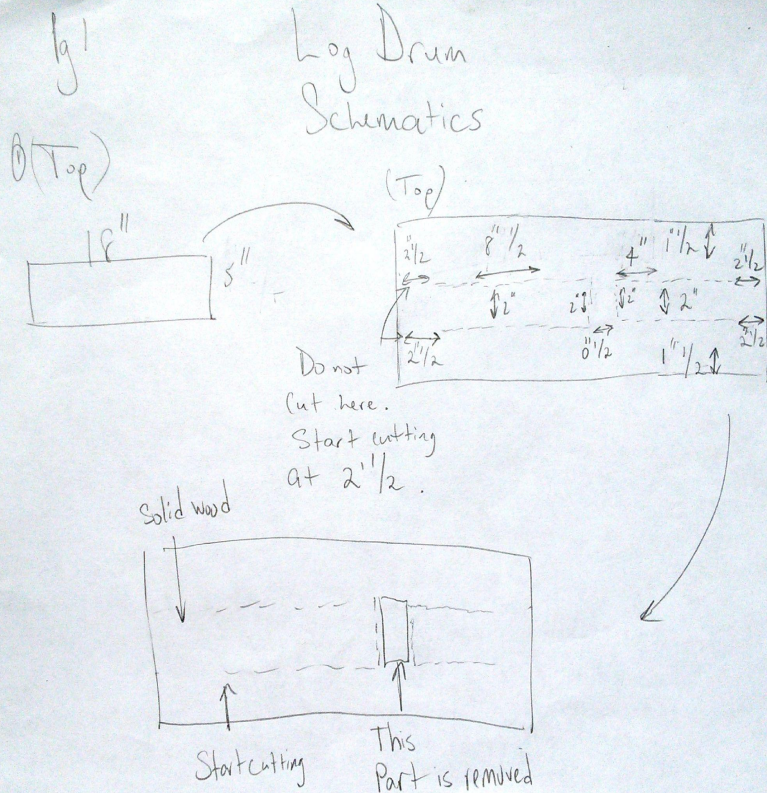 Pg 1
Log Drum
Schematics
① (Top)
18"
5"
(Top)
2"1/2
8"1/2
4"
1"1/2
2"1/2
2"
2"
2"
2"
2"1/2
0"1/2
1"1/2
2"1/2
Do not
Cut here.
Start cutting
at 2"1/2.
Solid wood
Start cutting
This
Part is removed